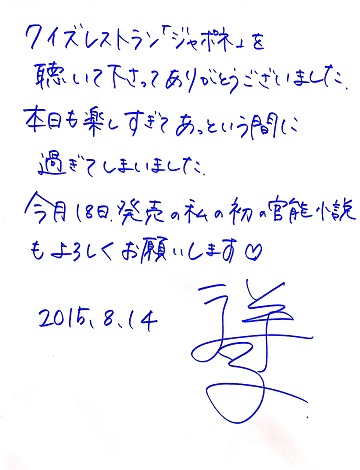 クイズレストラン「ジャポネ」を
聴いて下さってありがとうございました.
本日も楽しすぎてあっという間に
過ぎてしまいました.
今月18日.発売の私の初の官能小説
もよろしくお願いします♡
2015.8.14